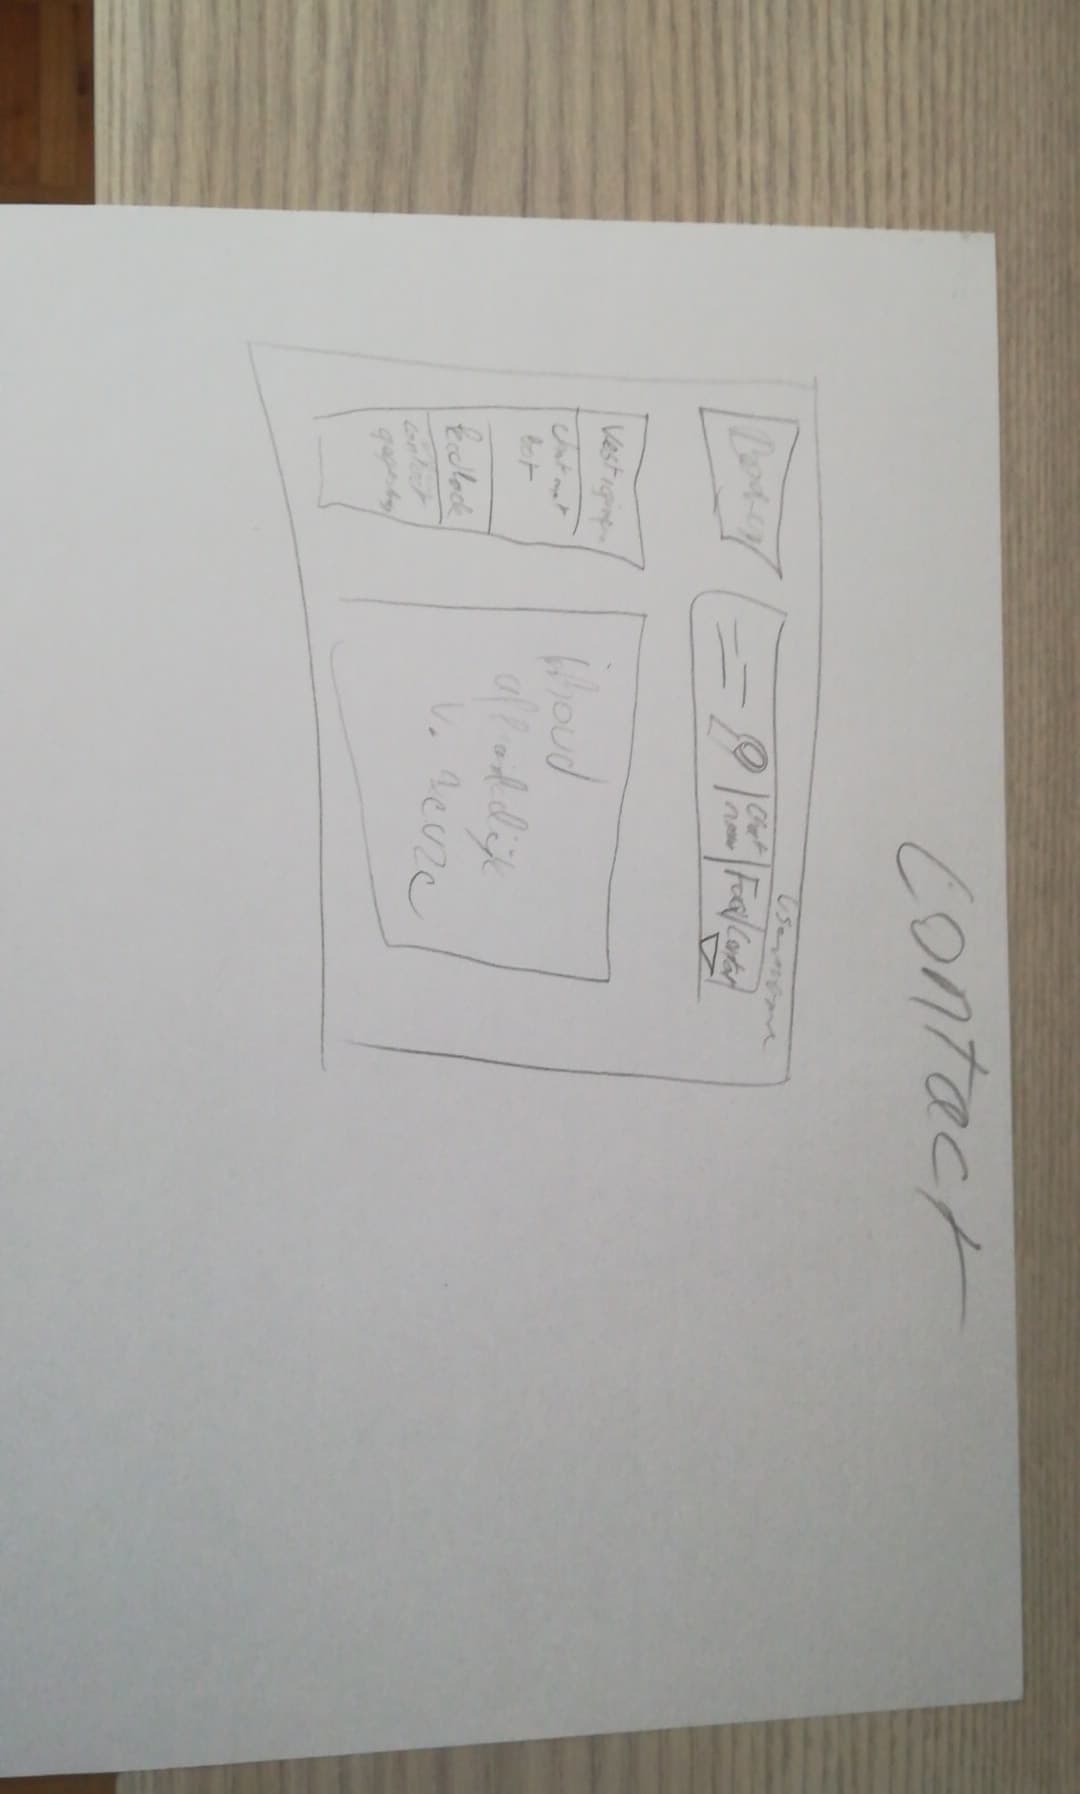 Contact
Username
Chat
now
Food
Contact
Vestigingen
chat met
bot
feedback
contact
gegevens
inhoud
afhankelijk
v. keuze